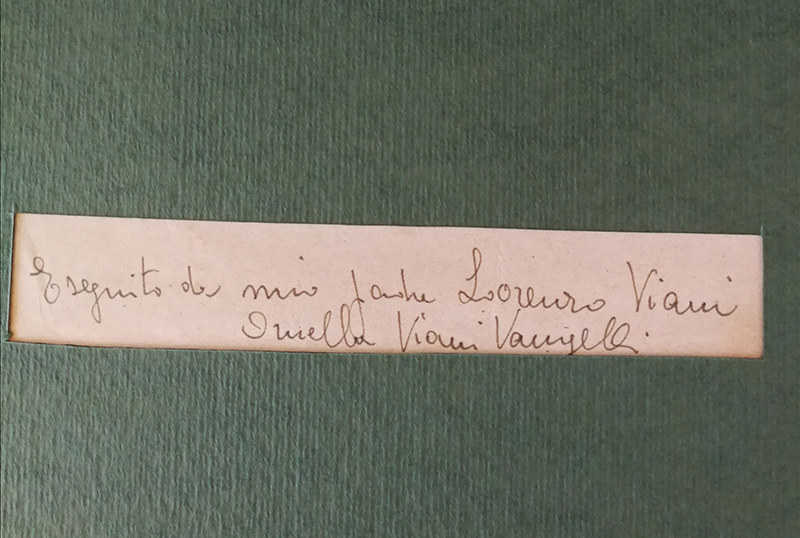 Eseguito da mio padre Lorenzo Viani
Ornella Viani Vannelli